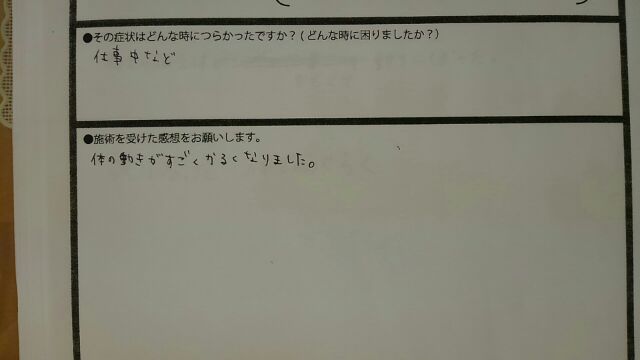 ●その症状はどんな時につらかったですか？(どんな時に困りましたか？)
仕事中など
●施術を受けた感想をお願いします。
体の動きがすごくかるくなりました。